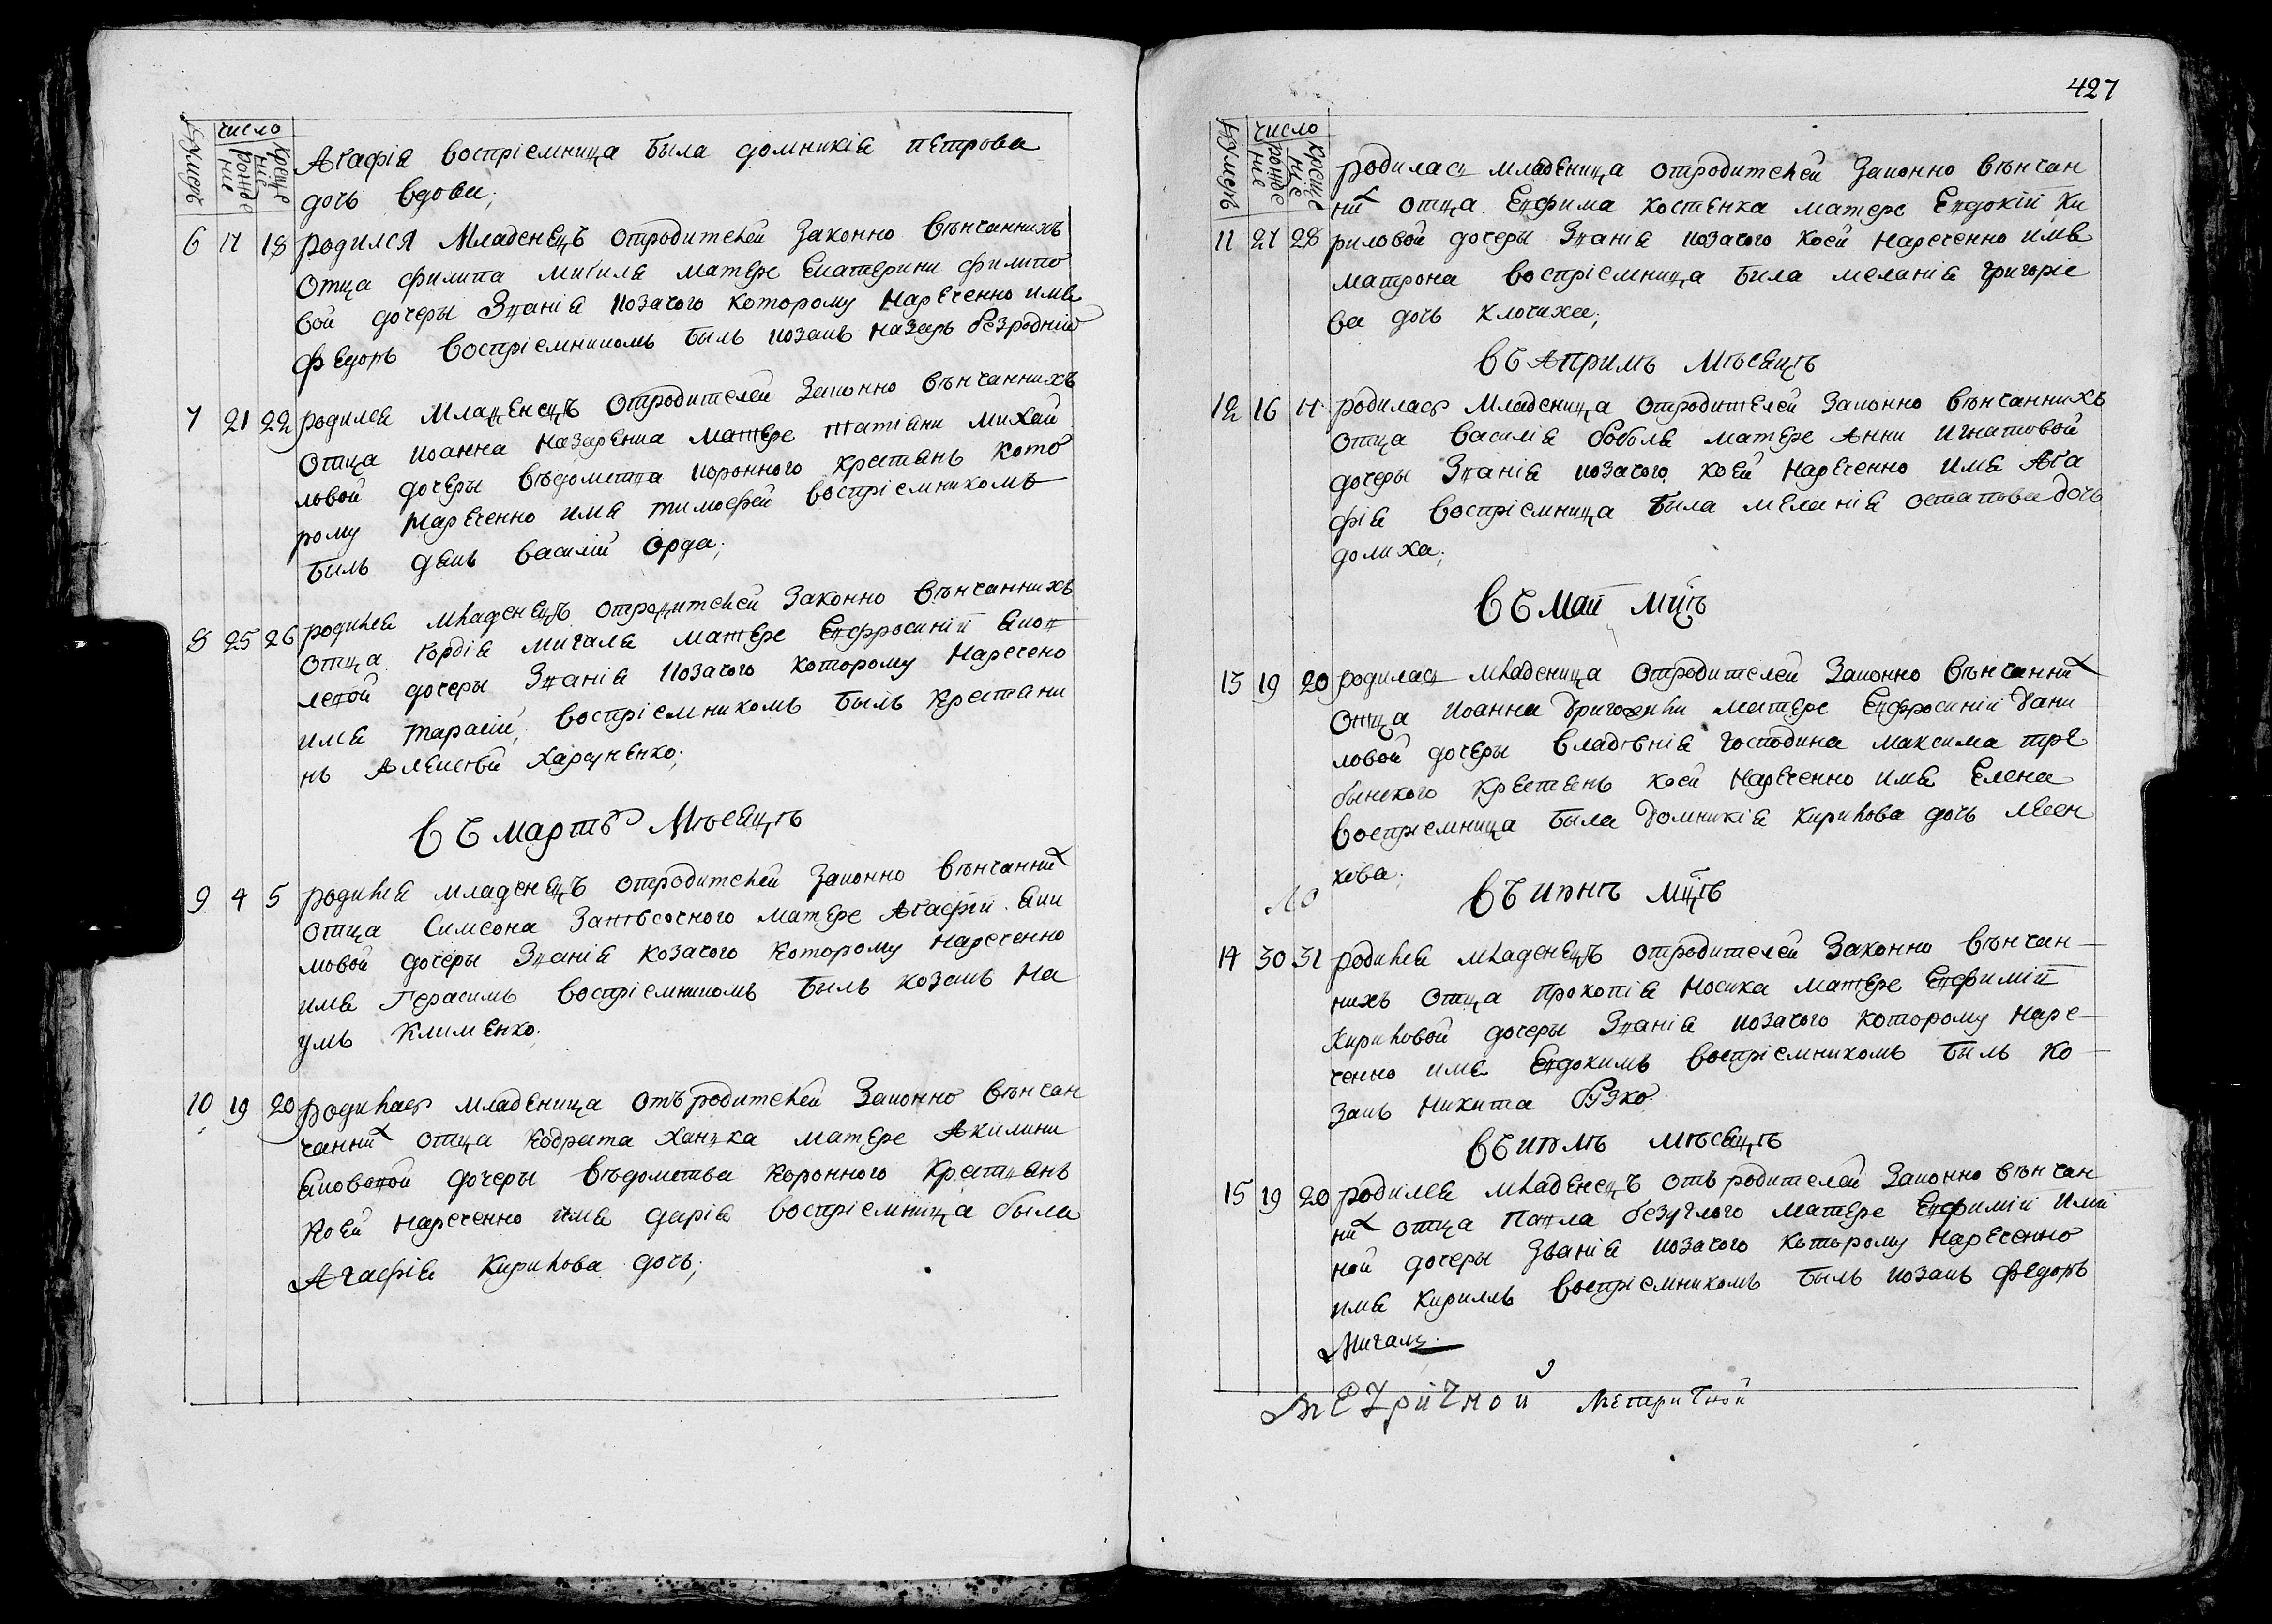 число
нумеръ
рожде
ние
креще
ніе
Агафія воспріемница была домникія петрова
дочь вдова;
6 17 18 родился Младенецъ отродителей законно вѣнчаннихъ
отца филипа мигиля матере Екатерини филипо
вой дочеры Званія козачого которому нареченно имя
федоръ воспріемникомъ былъ козакъ назаръ безродній
7 21 22 родился младенецъ отродителей законно вѣнчаннихъ
отца иоанна назаренка матере татіяни михай
ловой дочеры вѣдомства коронного крестянъ кото
рому нареченно имя тимофей воспріемникомъ
былъ дякъ василій орда;
8 25 26 родился младенецъ отродителей законно вѣнчаннихъ
отца гордія мигаля матере Евфросиніи яков
левой дочеры Званія козачого которому наречено
имя тарасій, воспріемникомъ былъ крестяни
нъ алексѣй харченко;
въ мартѣ мѣсяцѣ
9 4 5 родился младенецъ отродителей законно вѣнчанних
отца Симеона матере Агафіи яки
мовой дочеры Званія козачого которому нареченно
имя Герасимъ воспріемникомъ былъ козакъ на
умъ клименко;
10 19 20 родилась младеница отъ родителей законно вѣнчан
чанних отца кодрата матере Акилини
яковлевой дочеры вѣдомства коронного крестянъ
коей нареченно имя дарія воспріемница была
Агафія кирилова дочь;
427
число
нумеръ
рожде
ние
креще
ние
родилась младеница отродителей законно вѣнчан
них отца Евфима костенка матере Евдокіи ки
11 27 28 риловой дочеры Званія козачого коей нареченно имя
матрона воспріемница была меланія григоріе
ва дочь клочиха;
въ Априлѣ мѣсяцѣ
12 16 17 родилась младеница отродителей законно вѣнчаннихъ
отца василія боболя матере Анни игнатовой
дочеры Званія козачого коей нареченно имя Ага
фія воспріемница была меланія остапова дочь
долиха;
въ маи мцѣ
13 19 20 родилась младеница отродителей законно вѣнчанних
отца иоанна матере Евфросиніи дани
ловой дочеры владѣнія господина максима тре
бынского крестянъ коей нареченно имя Елена
воспріемница была домникія кирилова дочь
кова;
въ июнѣ мцѣ
14 30 31 родился младенецъ отродителей законно вѣнчан
нихъ отца прокопія носика матере Евфиміи
кириловой дочеры Званія козачого которому наре
ченно имя Евдокимъ воспріемникомъ былъ ко
закъ никита
въ июлѣ мѣсяцѣ
15 19 20 родился младенецъ отъ родителей законно вѣнчан
них отца Павла безуглого матере Евфиміи
ной дочеры званія козачого которому нареченно
имя кириллъ воспріемникомъ былъ козакъ федоръ
мигаль
метричной метричной